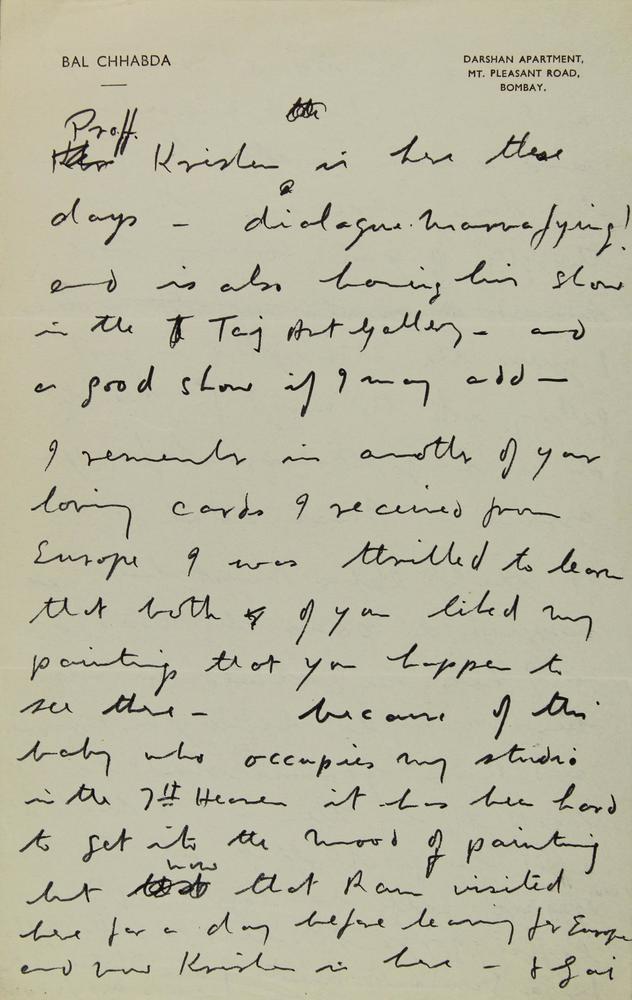 BAL CHHABDA
DARSHAN APARTMENT,
MT. PLEASANT ROAD,
BOMBAY.
Proff.
Krishen is here these
days – dialogue.
and is also having his show
in the Taj Art Gallery – and
a good show if I may add –
I remember in another of your
loving cards I received from
Europe I was thrilled to learn
that both of you liked my
paintings that you happen to
see there – because of this
baby who occupies my studio
in the 7th Heaven it has been hard
to get into the mood of painting
but now that Ram visited
here for a day before leaving for Europe
and now Krishen is here – &